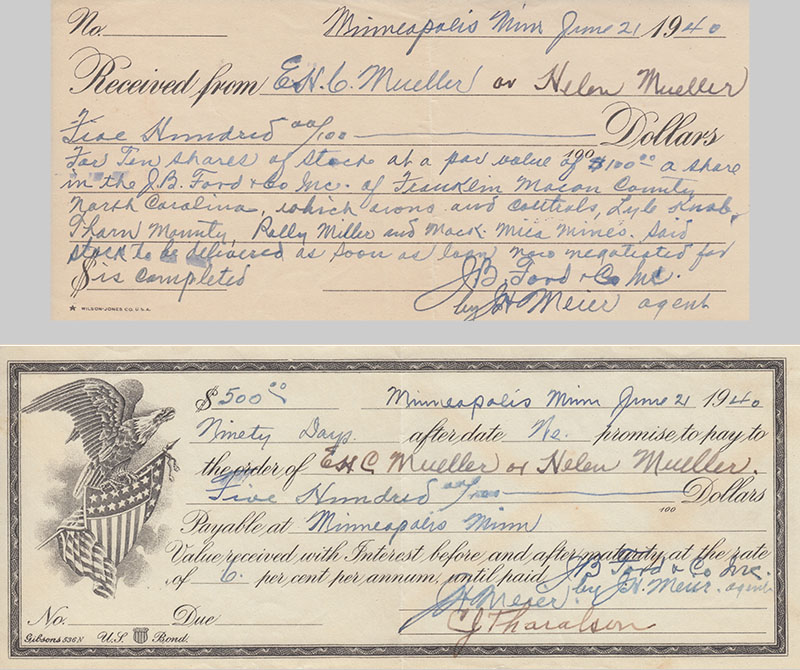 No. Minneapolis Minn June 21 1940
Received from E.H.C. Mueller or Helen Mueller
Five Hundred 00/100 Dollars
100
For Ten shares of stock at a par value of $100.00 a share
in the J.B. Ford & Co Inc. of Franklin Macon County
North Carolina, which owns and controls, Lyle Knob,
Tharn Mounty, Rally Miller and Mack. Mica Mines. Said
stock to be delivered as soon as loan now negotiated for
$ is completed J B Ford & Co Inc.
by J H Meier agent
WILSON-JONES CO. U.S.A.
$ 500.00 Minneapolis Minn June 21 1940
Ninety Days after date We. promise to pay to
the order of E H C Mueller or Helen Mueller.
Five Hundred 00/100 Dollars
100
Payable at Minneapolis Minn
Value received with Interest before, and after maturity, at the rate
of 6. per cent per annum, until paid J B Ford & Co Inc.
by J. H. Meier. agent
J H Meier
C J Tharalson
No. Due
Gibsons 536N U.S. Bond.